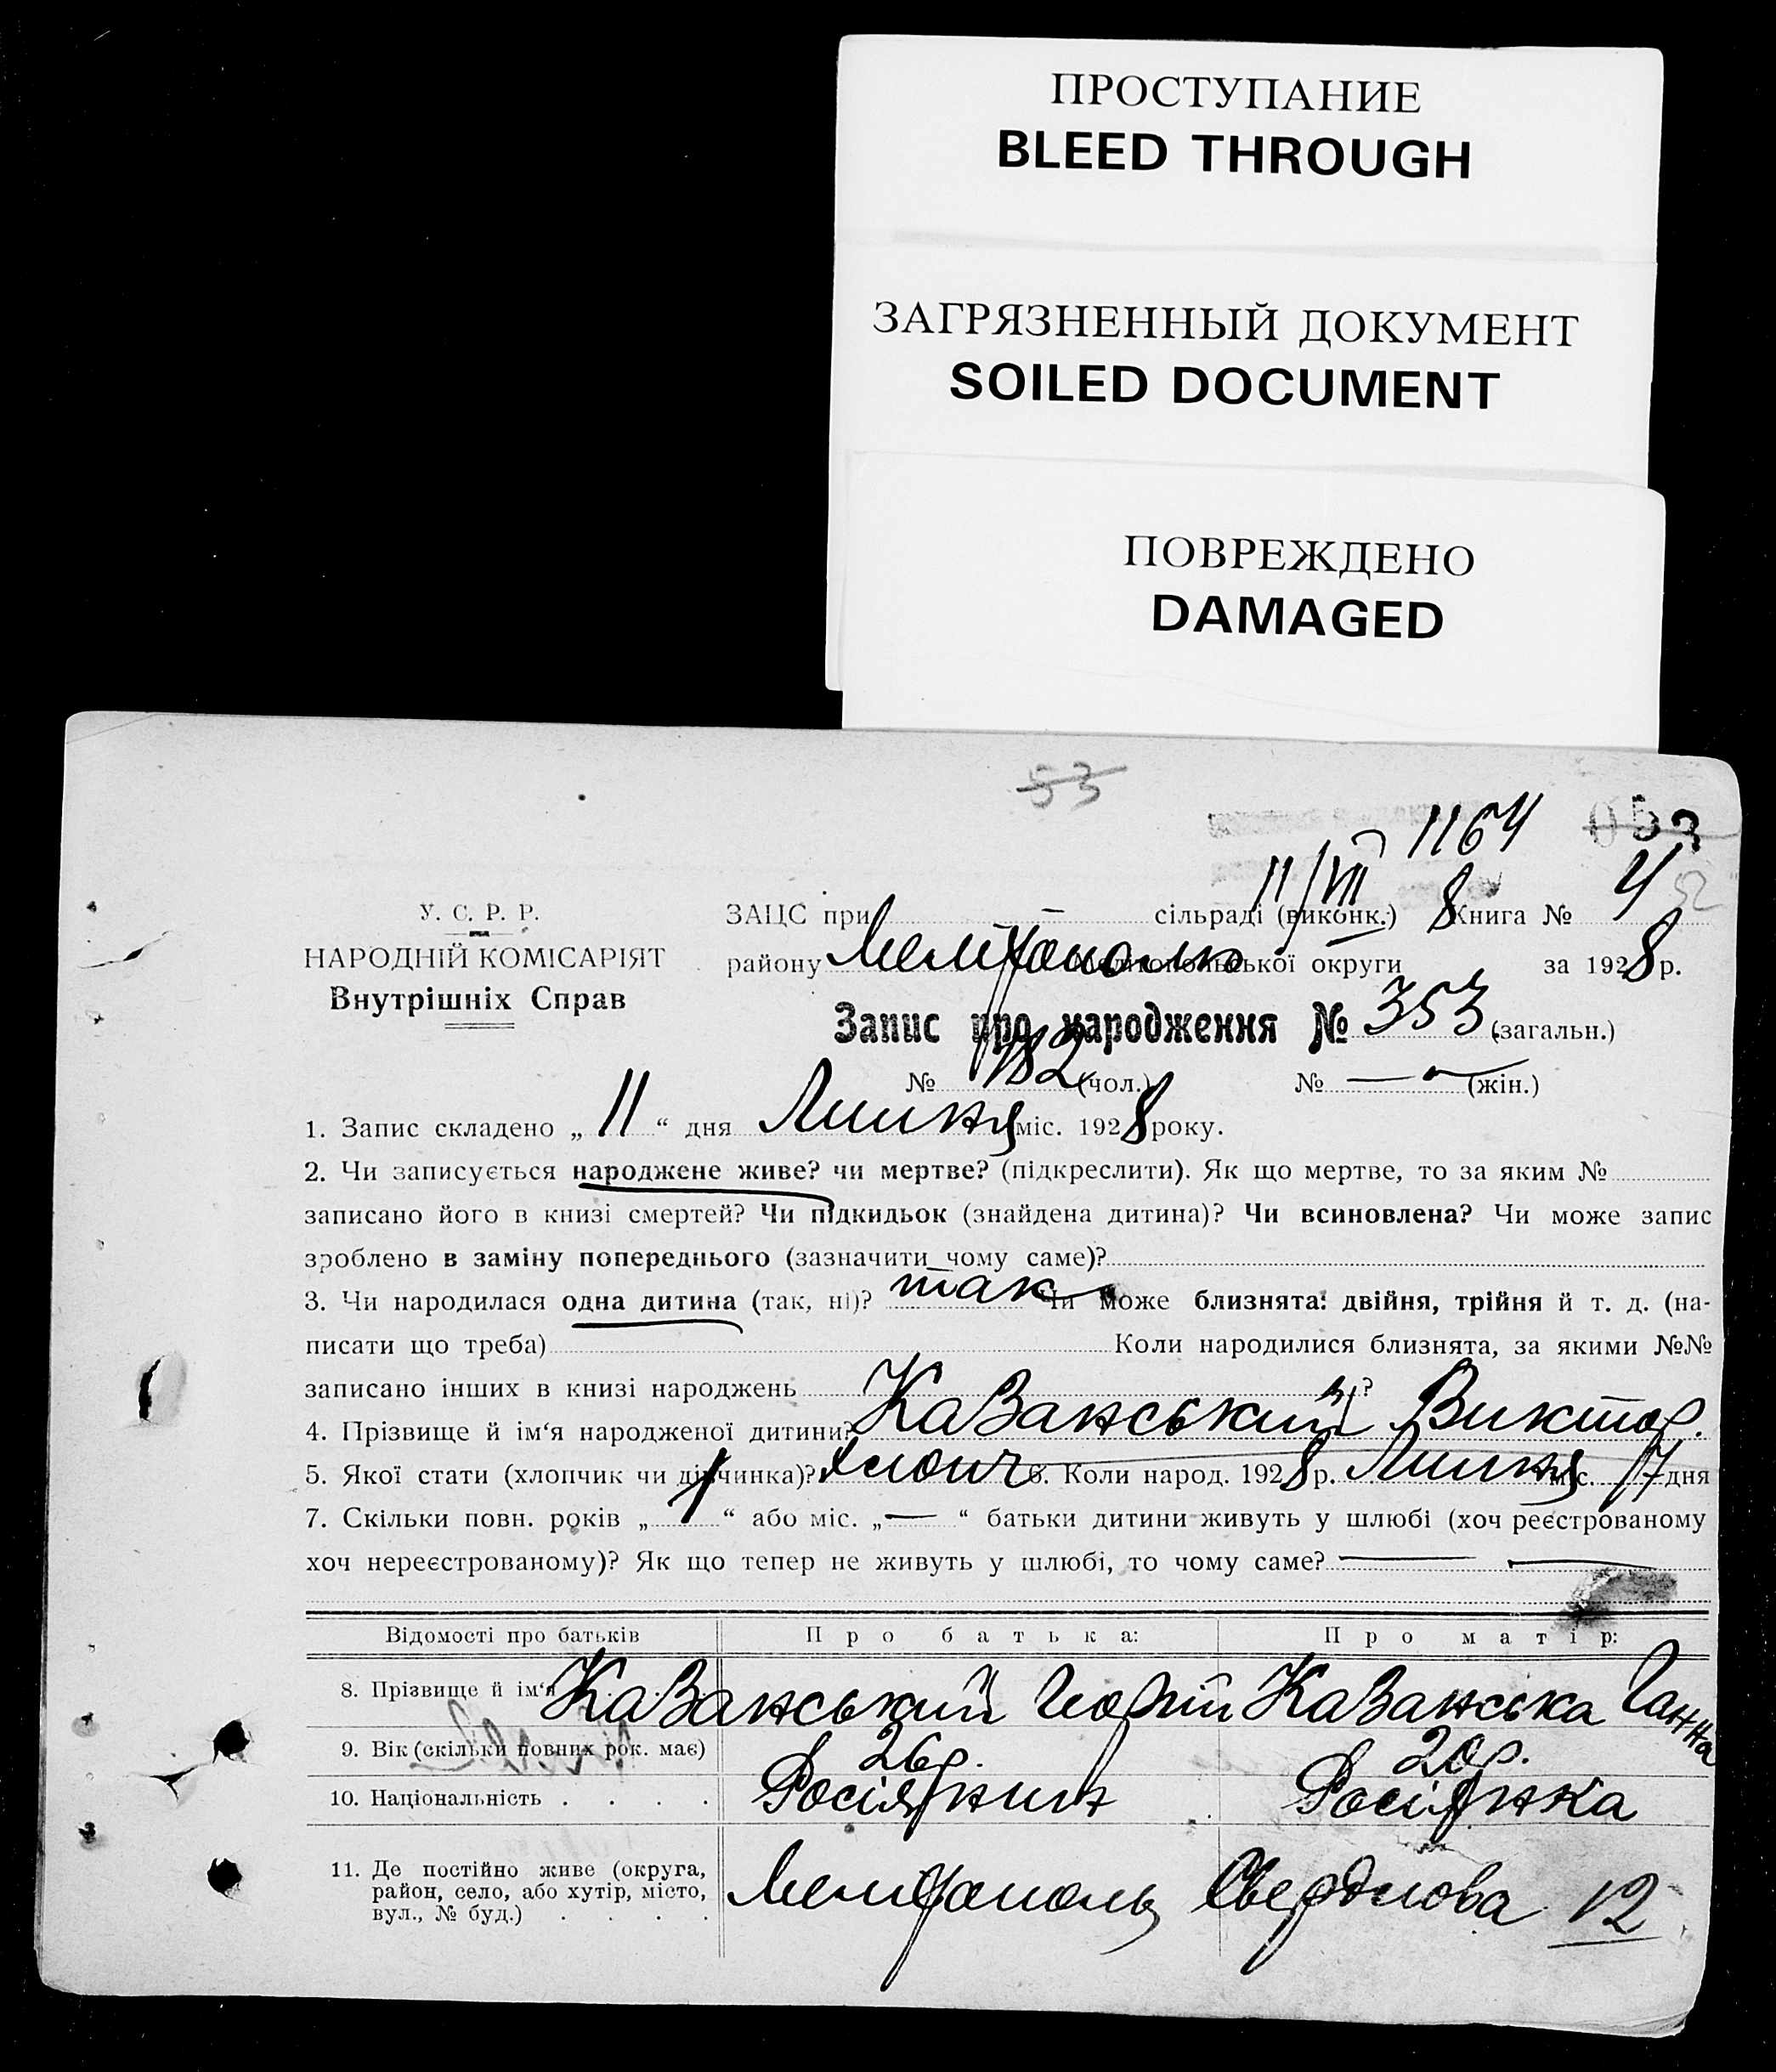 ПРОСТУПАНИЕ
BLEED THROUGH
ЗАГРЯЗНЕННЫЙ ДОКУМЕНТ
SOILED DOCUMENT
ПОВРЕЖДЕНО
DAMAGED
53
1164 053
11/VII 8 4
У. С. Р. Р.
НАРОДНІЙ КОМІСАРІЯТ
Внутрішніх Справ
ЗАЦС при — сільраді (виконк.) Книга №
району Мелітополь Мелітопольської округи за 1928 р.
Запис про народження № 353 (загальн.)
№ 182 (чол.) № — (жін.)
1. Запис складено „ 11 “ дня Липня міс. 1928 року.
2. Чи записується народжене живе? чи мертве? (підкреслити). Як що мертве, то за яким №
записано його в книзі смертей? Чи підкидьок (знайдена дитина)? Чи всиновлена? Чи може запис
зроблено в заміну попереднього (зазначити чому саме)?
3. Чи народилася одна дитина (так, ні)? так Чи може близнята: двійня, трійня й т. д. (на-
писати що треба) Коли народилися близнята, за якими №№
записано інших в книзі народжень ?
4. Прізвище й ім‘я народженої дитини? Казанський Виктор.
5. Якої стати (хлопчик чи дівчинка)? хлопч 6. Коли народ. 1928 р. Липня міс. 7 дня
7. Скільки повн. років „ 1 “ або міс. „ — “ батьки дитини живуть у шлюбі (хоч реєстрованому
хоч нереєстрованому)? Як що тепер не живуть у шлюбі, то чому саме? — —
Відомості про батьків Про батька: Про матір:
8. Прізвище й ім‘я Казанський Георгій Казанська Ганна
9. Вік (скільки повних рок. має) 26 р. 20 р.
10. Національність . . . . Росіянин Росіянка
11. Де постійно живе (округа,
район, село, або хутір, місто,
вул., № буд.) . . . .
Мелітополь Свердлова 12